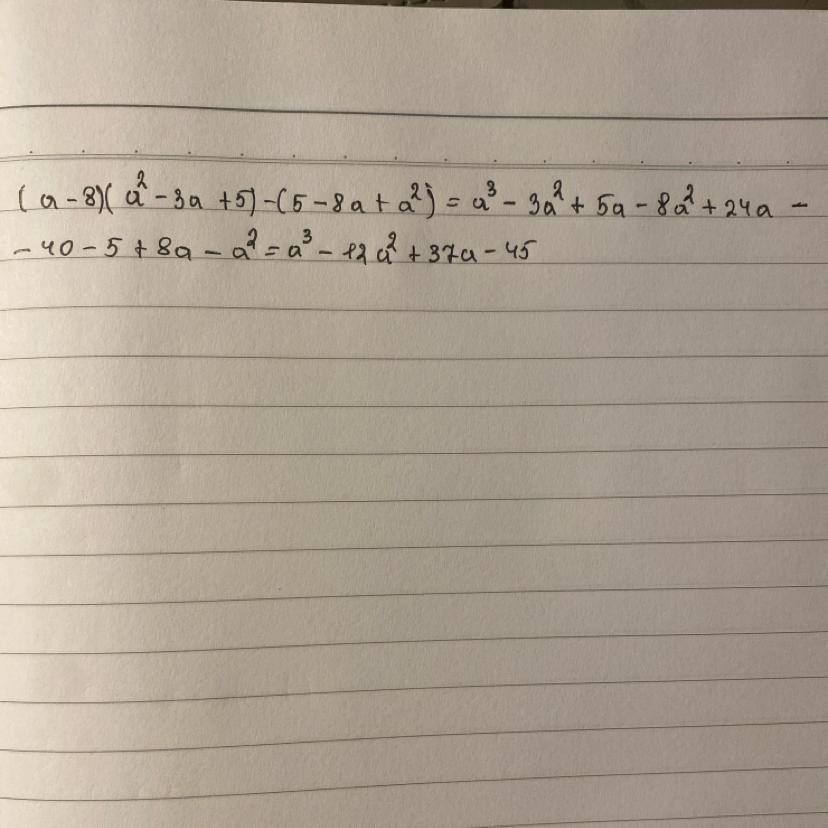 (a-8)(a²-3a+5)-(5-8a+a²) = a³ - 3a² + 5a - 8a² + 24a -
- 40 - 5 + 8a - a² = a³ - 12a² + 37a - 45